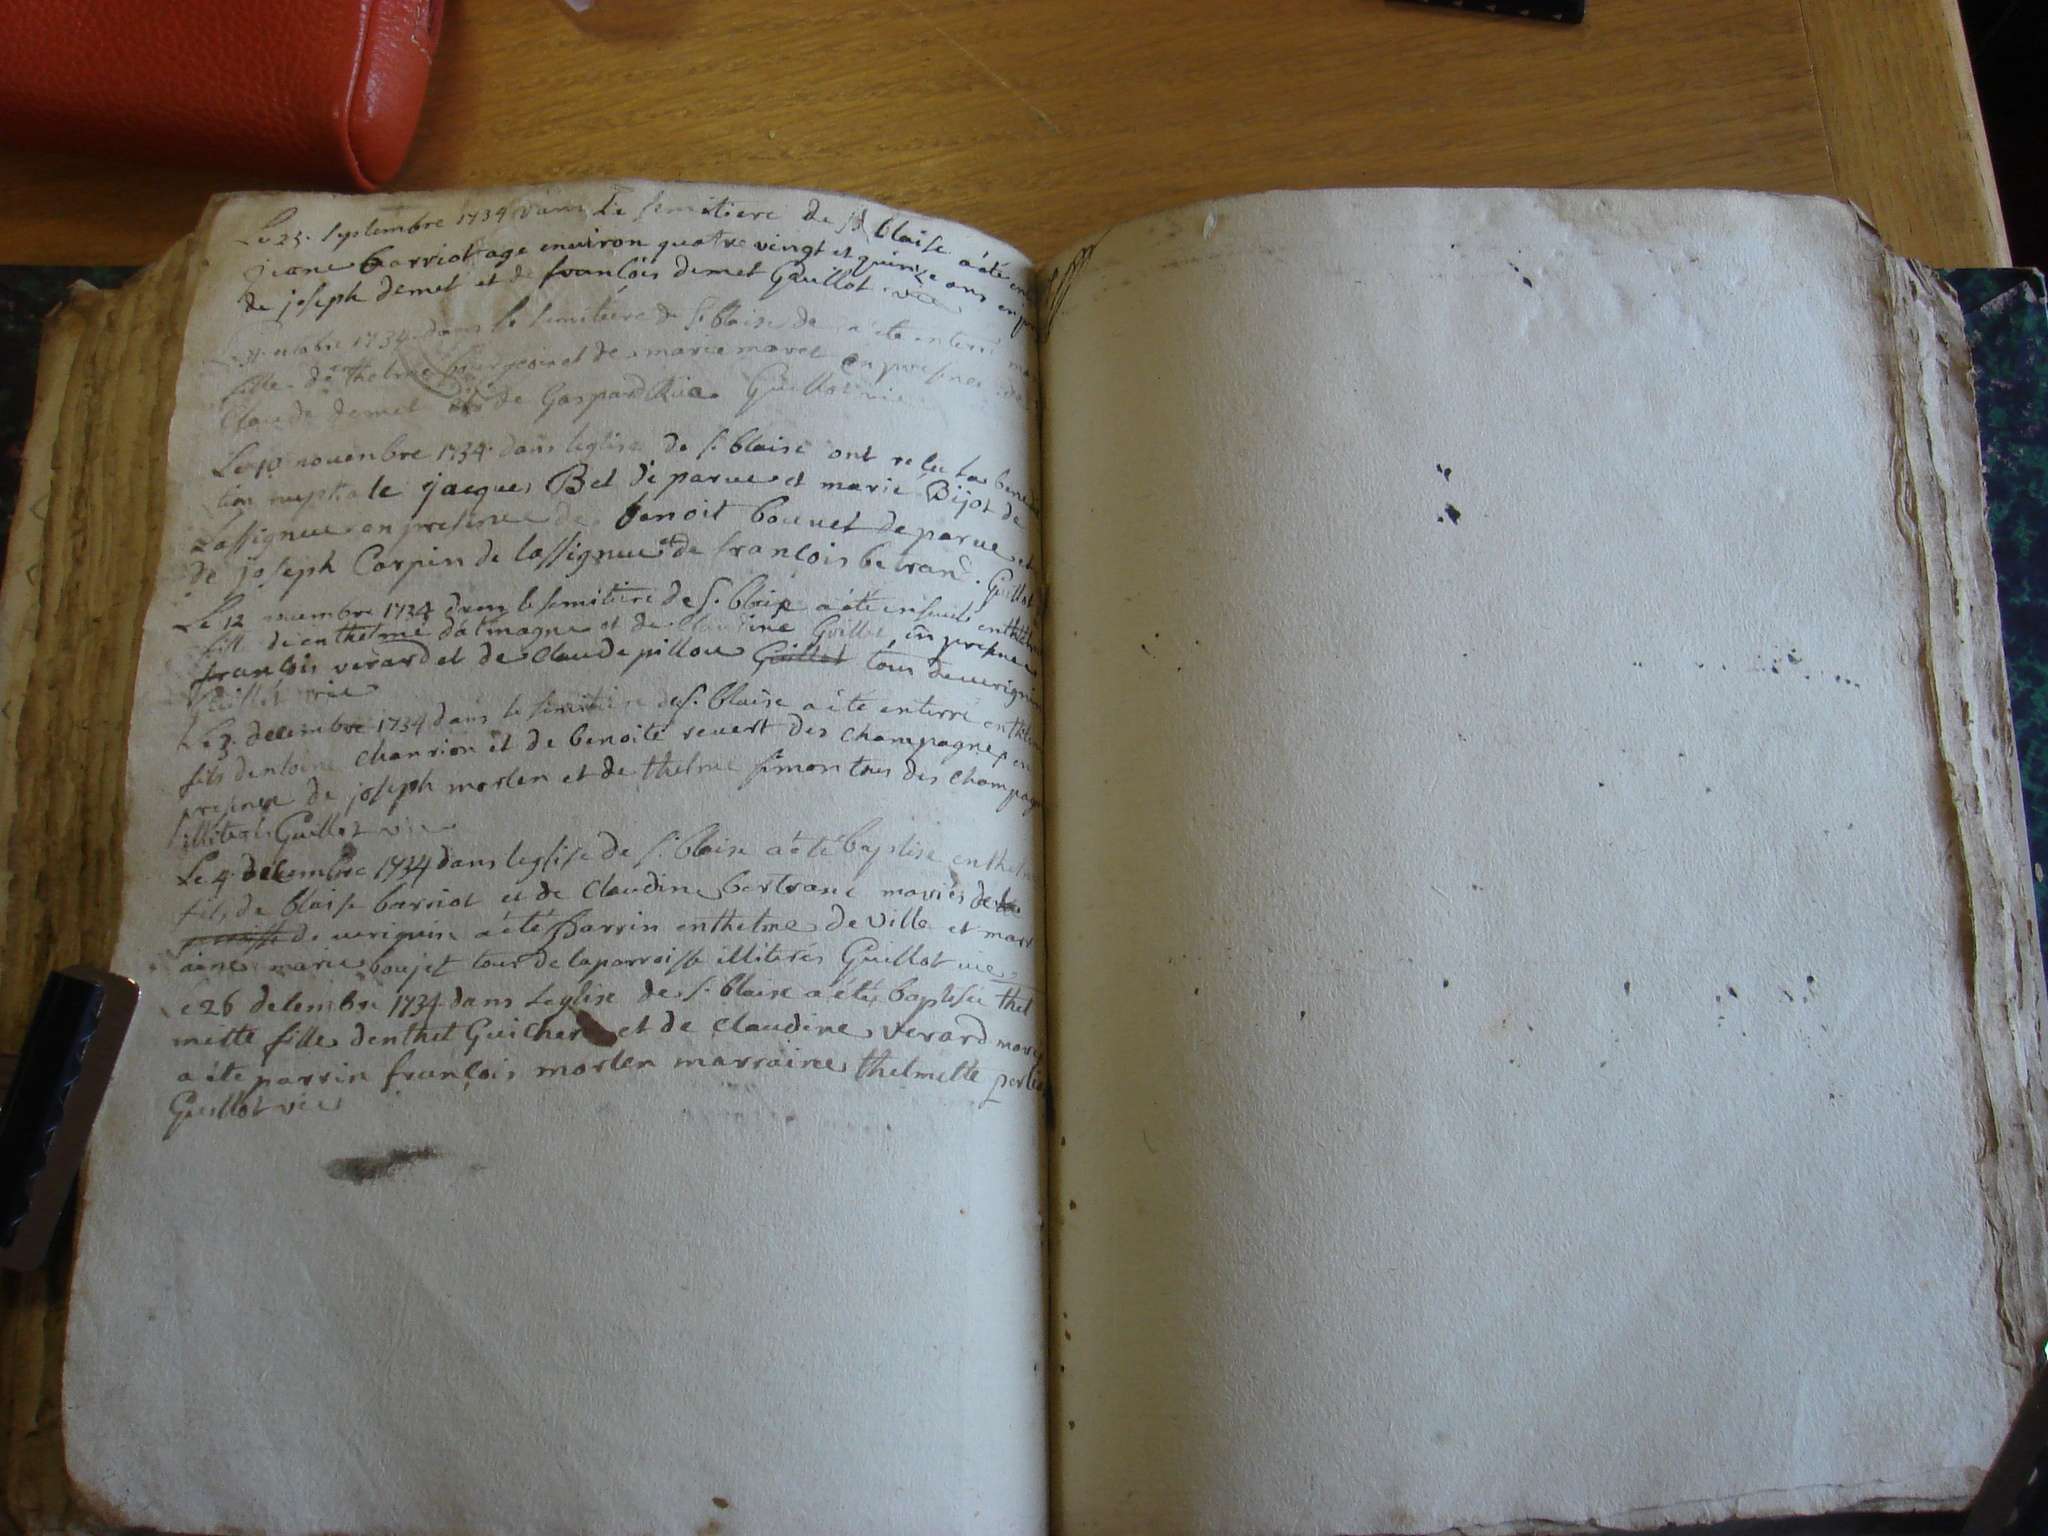 Le 25. septembre 1734 dans Le semitiere de St blaise a été
jeane barriot age environ quatre vingt et quinze ans en
de joseph demet et de françois demet Guillot vic
octobre 1734. dans le semitiére de St blaise a été enterré
fille de thelme bourgeois et de marie maret en presence de
Claude demet et de Gaspard Guillot vic
Le 10 novembre 1734. dans leglise de St blaise ont reçu la bene
tion nuptiale jacques Bel de parve et marie Bijot de
Lassignieu en presence de benoit bouvet de parve et
de joseph Carpin de lassignieu et de francois betrand. Guillot
Le 12 novembre 1734 dans le semitiere de St. blaise a été
fils de enthelme dalmagne et de Claudine Guillot en presence
françois verard et de Claude pillou Guillot tous de
Guillot vic
Le 3. decembre 1734 dans le semitiere de St. blaise a été enterré
fils dentoine chanrion et de benoite revert des champagne en
presence de joseph morlen et de thelme simon tous des
illiterés Guillot vic
Le 4. decembre 1734 dans leglise de St. blaise a été baptisé enthelme
fils de blaise barriot et de Claudine bertrand mariés de la
paroisse de a été Parrin enthelme de ville et marr
aine marie boujet tous de la parroisse illiterés Guillot vic
Le 26 decembre 1734. dans Leglise de St. blaise a été baptisée thel
mette fille denthel Guicher et de claudine verard
a été parrin françois morlen marraine thelmette
Guillot vic